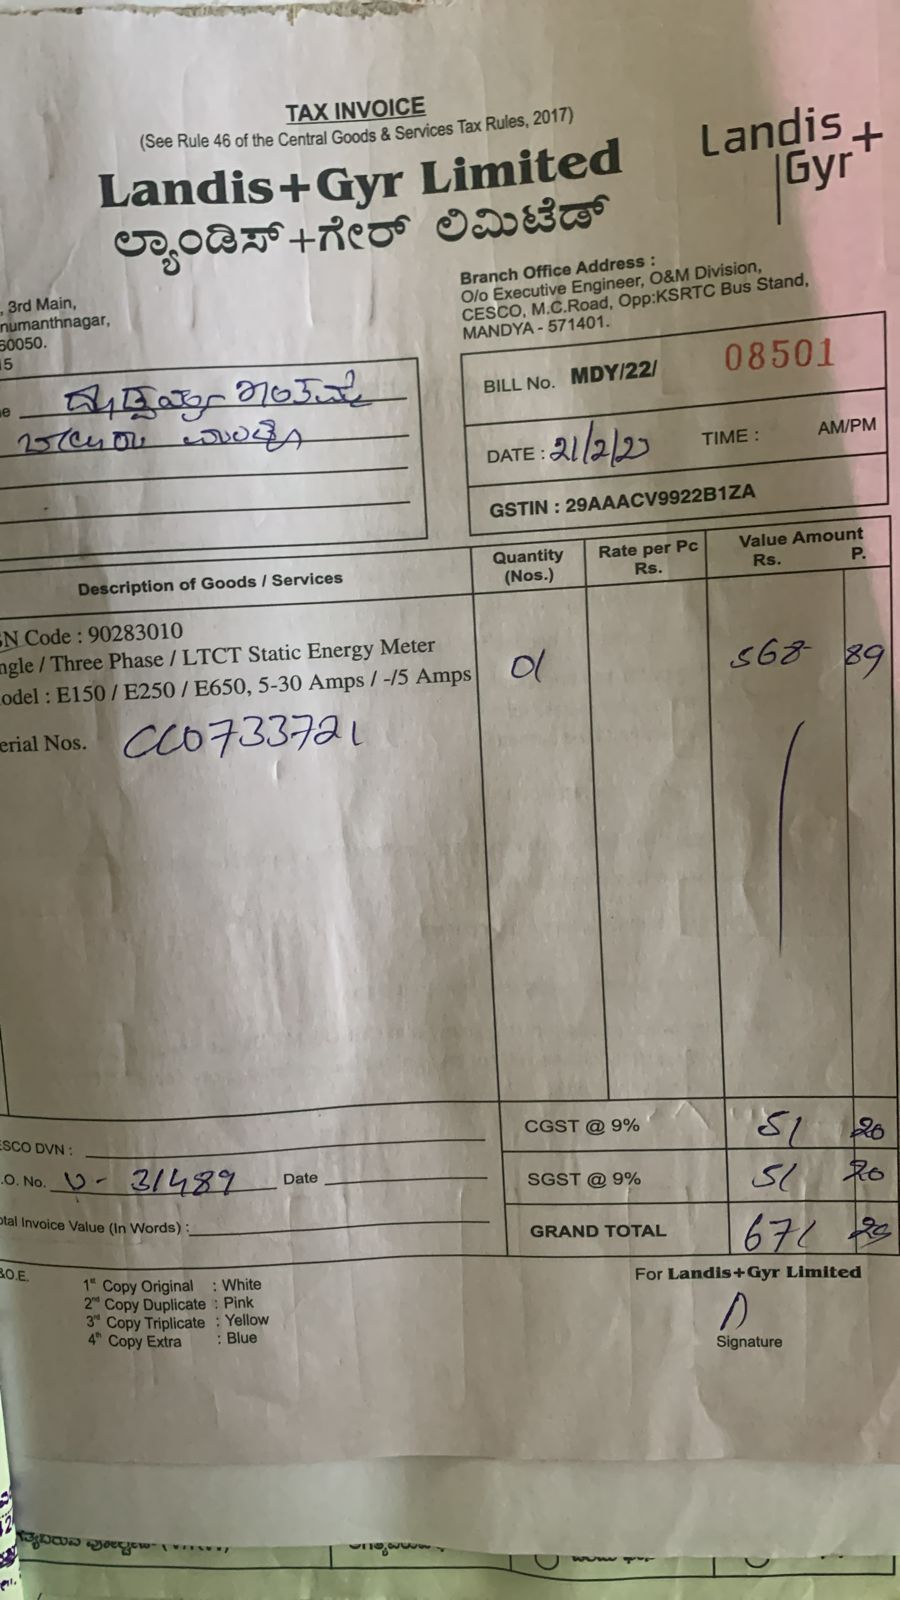 TAX INVOICE
(See Rule 46 of the Central Goods & Services Tax Rules, 2017)
Landis+Gyr Limited
ಲ್ಯಾಂಡಿಸ್+ಗೇರ್ ಲಿಮಿಟೆಡ್
Landis
Gyr+
, 3rd Main,
numanthnagar,
60050.
15
Branch Office Address :
O/o Executive Engineer, O&M Division,
CESCO, M.C.Road, Opp:KSRTC Bus Stand,
MANDYA - 571401.
BILL No. MDY/22/ 08501
DATE : 21/2/23 TIME : AM/PM
GSTIN : 29AAACV9922B1ZA
Description of Goods / Services Quantity (Nos.) Rate per Pc Rs. Value Amount Rs. P.
SN Code : 90283010
ngle / Three Phase / LTCT Static Energy Meter 01 568 89
odel : E150 / E250 / E650, 5-30 Amps / -/5 Amps
erial Nos. CC0733721
CGST @ 9% 51 20
ESCO DVN :
SGST @ 9% 51 20
.O. No. 31489 Date
GRAND TOTAL 671
otal Invoice Value (In Words) :
&O.E.
1st Copy Original : White
2nd Copy Duplicate : Pink
3rd Copy Triplicate : Yellow
4th Copy Extra : Blue
For Landis+Gyr Limited
Signature